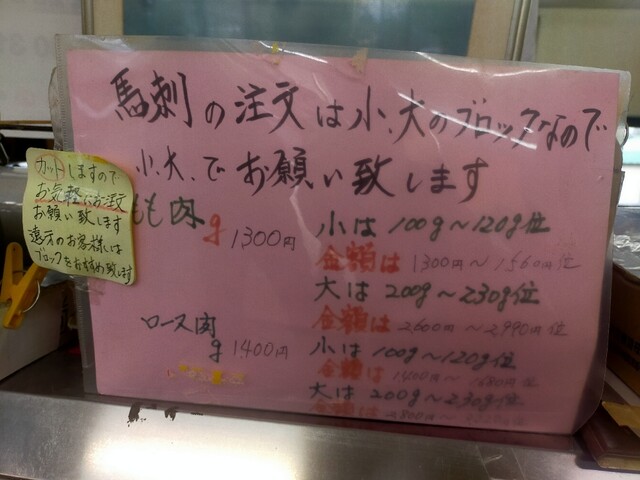 馬刺の注文は小、大のブロックなので
小、大、でお願い致します
カットしますので
お気軽に注文
お願い致します
遠方のお客様は
ブロックをおすすめ致します
もも肉
g 1300円
小は 100g〜120g位
金額は 1300円〜1560円位
大は 200g〜230g位
金額は 2600円〜2990円位
ロース肉
g 1400円
小は 100g〜120g位
金額は 1400円〜1680円位
大は 200g〜230g位
金額は